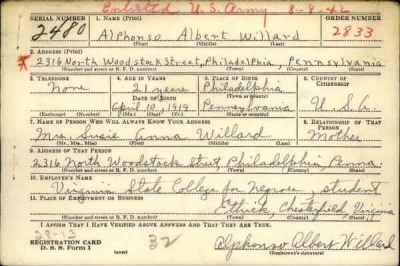 Enlisted U.S. Army 8-8-42
SERIAL NUMBER 1. NAME (Print) ORDER NUMBER
2480 Alphonso Albert Willard 2833
(First) (Middle) (Last)
2. ADDRESS (Print)
2316 North Woodstock Street, Philadelphia, Pennsylvania
(Number and street or R. F. D. number) (Town) (County) (State)
3. TELEPHONE 4. AGE IN YEARS 5. PLACE OF BIRTH 6. COUNTRY OF CITIZENSHIP
None 21 years Philadelphia
DATE OF BIRTH (Town or county)
April 10, 1919 Pennsylvania U.S.A.
(Exchange) (Number) (Mo.) (Day) (Yr.) (State or country)
7. NAME OF PERSON WHO WILL ALWAYS KNOW YOUR ADDRESS 8. RELATIONSHIP OF THAT PERSON
Mrs. Susie Anna Willard Mother
(Mr., Mrs., Miss) (First) (Middle) (Last)
9. ADDRESS OF THAT PERSON
2316 North Woodstock Street, Philadelphia, Penna.
(Number and street or R. F. D. number) (Town) (County) (State)
10. EMPLOYER'S NAME
Virginia State College for Negroes, student
11. PLACE OF EMPLOYMENT OR BUSINESS
Ettrick, Chesterfield, Virginia
(Number and street or R. F. D. number) (Town) (County) (State)
I AFFIRM THAT I HAVE VERIFIED ABOVE ANSWERS AND THAT THEY ARE TRUE.
38-13
REGISTRATION CARD 32 Alphonso Albert Willard
D. S. S. Form 1 (Registrant's signature)